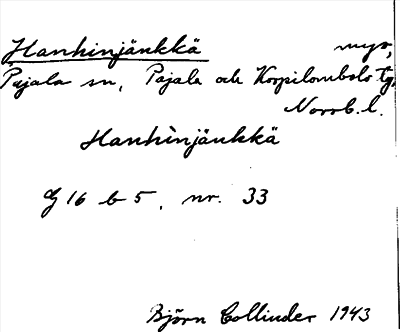 Hanhinjänkkä myr,
Pajala sn, Pajala och Korpilombolo tg,
Norrb. l.
Hanhinjänkkä
G 16 b 5, nr. 33
Björn Collinder 1943